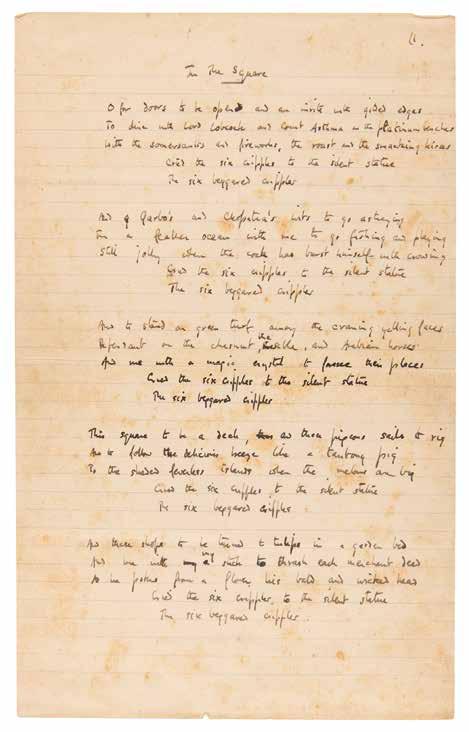 11.
In the Square
O for doors to be open and an invite with gilded edges
To dine with Lord Lobcock and Count Asthma on the platinum benches
With the somersaults and fireworks, the roast and the smacking kisses
Cried the six cripples to the silent statue
The six beggared cripples
And Garbo's and Cleopatra's wits to go astraying
In a feather ocean with me to go fishing and playing
Still jolly when the cock has burst himself with crowing
Cried the six cripples to the silent statue
The six beggared cripples
And to stand on green turf among the craning yelling faces
Dependant on the chestnut, the sable, and Arabian horses
And me with a magic crystal to foresee their places
Cried the six cripples to the silent statue
The six beggared cripples
This square to be a deck, and these pigeons sails to rig
And to follow the delicious breeze like a tantony pig
To the shaded feverless islands where the melons are big
Cried the six cripples to the silent statue
The six beggared cripples
And these shops to be turned to tulips in a garden bed
And me with my stick to thrash each merchant dead
As he pokes from a flower his bald and wicked head
Cried the six cripples to the silent statue
The six beggared cripples.